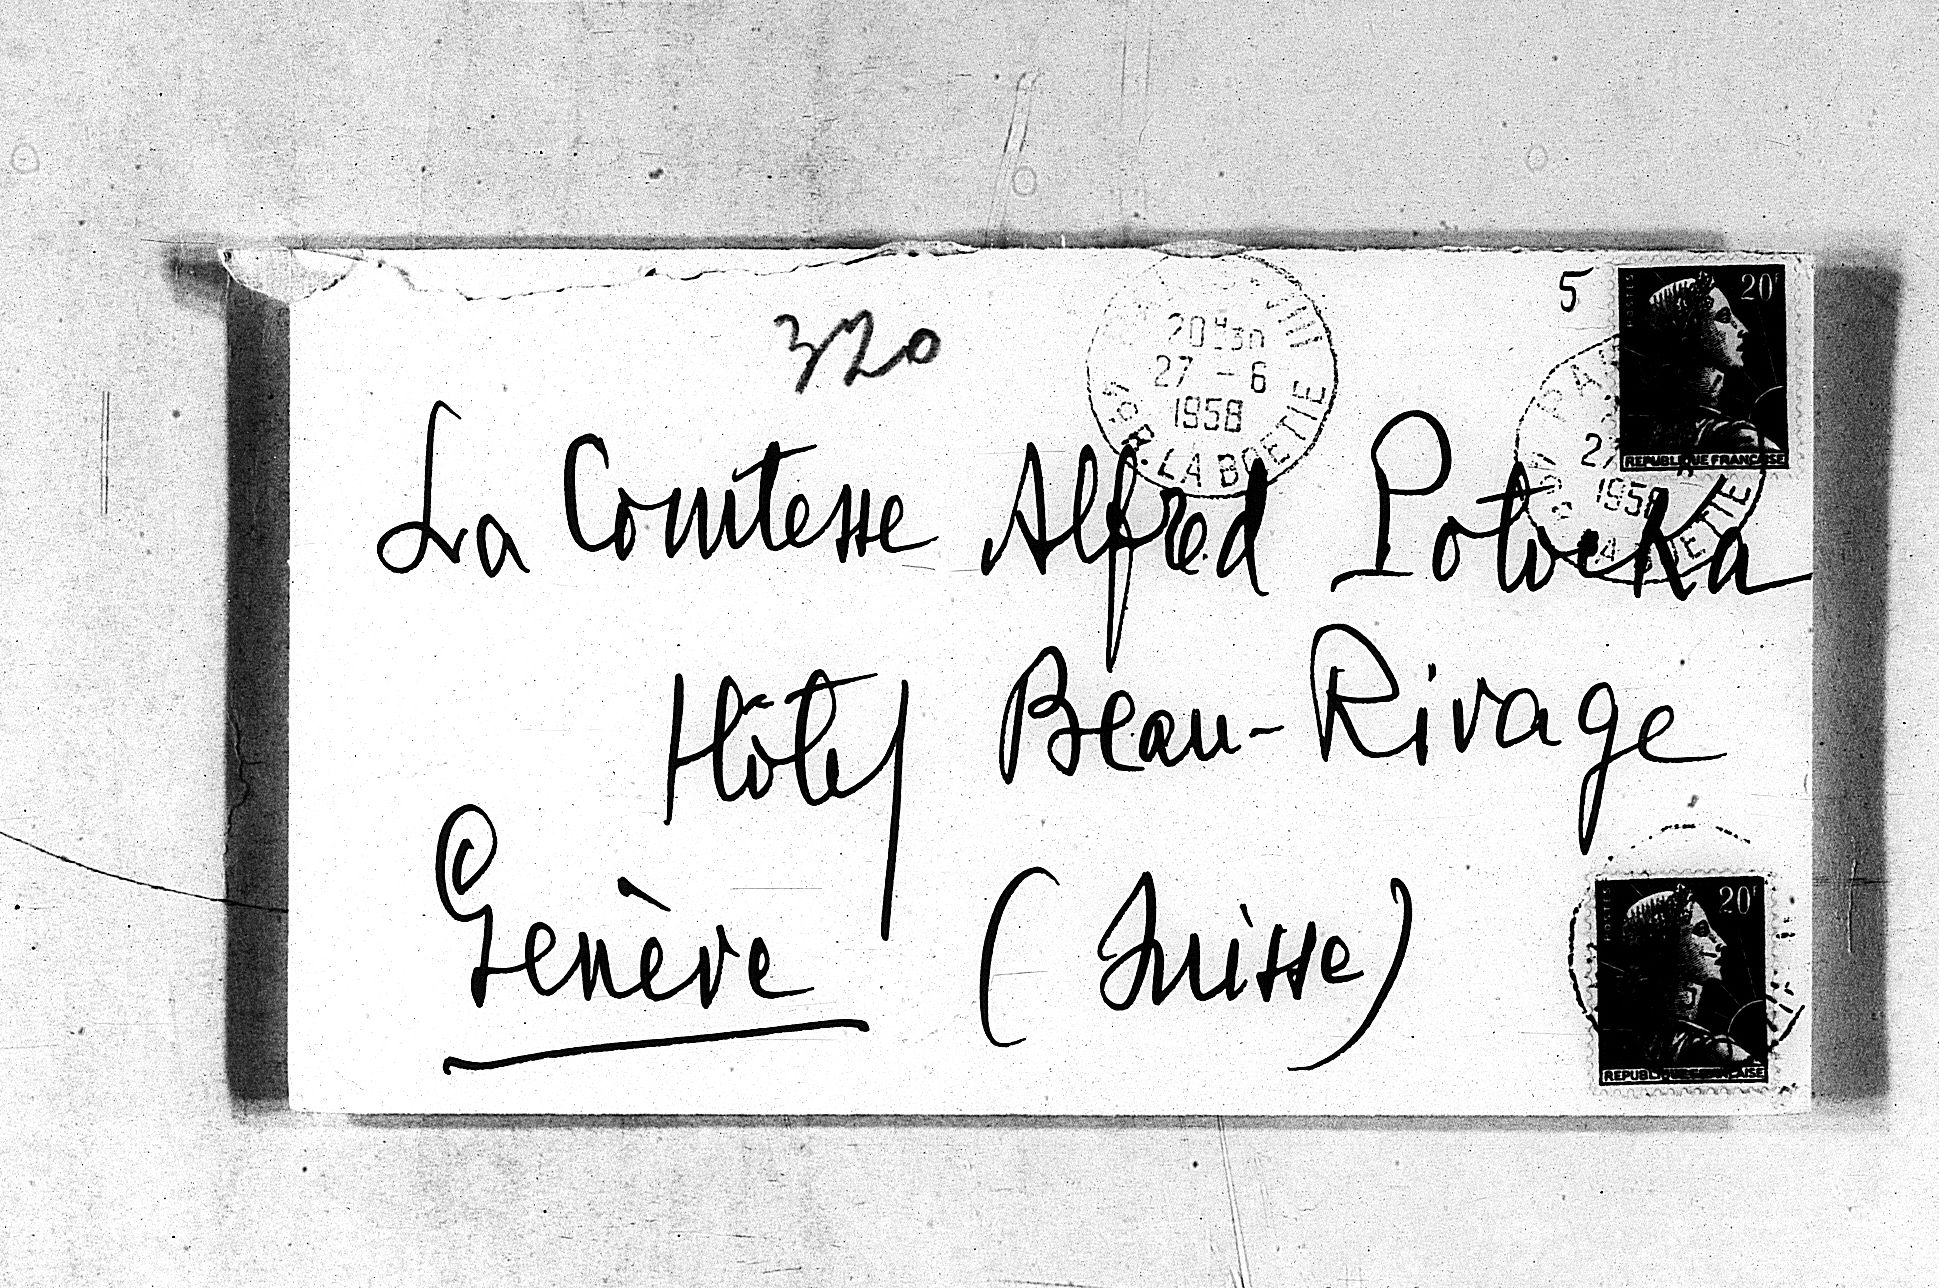 320
20H30
27 - 6
1958
R. LA BOETIE
5
20F
REPUBLIQUE FRANCAISE
La Comtesse Alfred Potocka
Hôtel Beau-Rivage
Genève (Suisse)
20F
REPUBLIQUE FRANCAISE